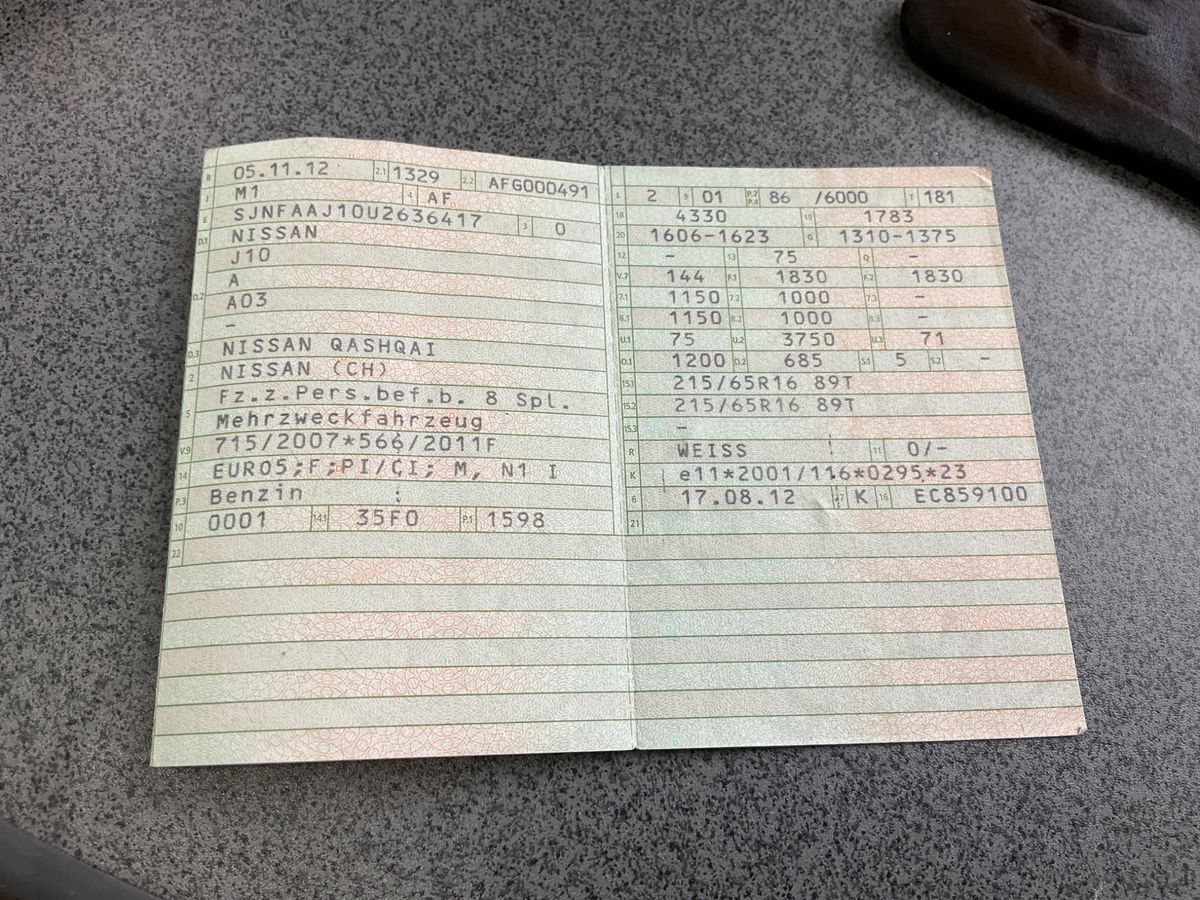 B 05.11.12 2.1 1329 2.2 AFG000491
J M1 4 AF
E SJNFAAJ10U2636417 3 0
D.1 NISSAN
J10
D.2 A
A03
-
D.3 NISSAN QASHQAI
2 NISSAN (CH)
5 Fz.z.Pers.bef.b. 8 Spl.
Mehrzweckfahrzeug
V.9 715/2007*566/2011F
14 EURO5;F;PI/CI; M, N1 I
P.3 Benzin
10 0001 14.1 35F0 P.1 1598
22
L 2 9 01 P.2 P.4 86 /6000 T 181
18 4330 19 1783
20 1606-1623 G 1310-1375
12 - 13 75 Q -
V.7 144 F.1 1830 F.2 1830
7.1 1150 7.2 1000 7.3 -
8.1 1150 8.2 1000 8.3 -
U.1 75 U.2 3750 U.3 71
O.1 1200 O.2 685 S.1 5 S.2 -
15.1 215/65R16 89T
15.2 215/65R16 89T
15.3 -
R WEISS 11 0/-
K e11*2001/116*0295*23
6 17.08.12 17 K 16 EC859100
21